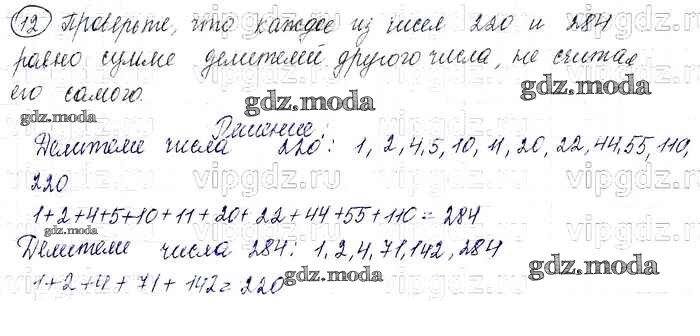 12 Проверьте, что каждое из чисел 220 и 284
равно сумме делителей другого числа, не считая
его самого.
gdz.moda
gdz.moda
Решение:
Делители числа 220: 1, 2, 4, 5, 10, 11, 20, 22, 44, 55, 110,
220
gdz.moda
1+2+4+5+10+11+20+22+44+55+110=284
gdz.moda
Делители числа 284: 1, 2, 4, 71, 142, 284
1+2+4+71+142=220
gdz.moda
vipgdz.ru